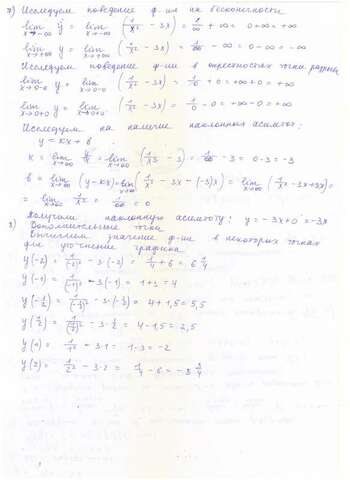 7) Исследуем поведение ф-ии на бесконечности
lim x→-∞ y = lim x→-∞ (1/x² - 3x) = 1/∞ + ∞ = 0+∞ = +∞
lim x→+∞ y = lim x→+∞ (1/x² - 3x) = 1/∞ - ∞ = 0-∞ = -∞
Исследуем поведение ф-ии в окрестностях точки разрыва
lim x→0-0 y = lim x→0-0 (1/x² - 3x) = 1/0 + 0 = +∞ + 0 = +∞
lim x→0+0 y = lim x→0+0 (1/x² - 3x) = 1/0 - 0 = +∞ - 0 = +∞
Исследуем на наличие наклонных асимптот:
y = kx + b
k = lim x→∞ y/x = lim x→∞ (1/x³ - 3) = 1/∞ - 3 = 0-3 = -3
b = lim x→∞ (y-kx) = lim x→∞ (1/x² - 3x - (-3)x) = lim x→∞ (1/x² - 3x+3x) =
= lim x→∞ 1/x² = 1/∞ = 0
Получили наклонную асимптоту: y = -3x+0 = -3x
8) Дополнительные точки
Вычислим значение ф-ии в некоторых точках
для уточнения графика
y(-2) = 1/(-2)² - 3·(-2) = 1/4 + 6 = 6 1/4
y(-1) = 1/(-1)² - 3(-1) = 1+3 = 4
y(-1/2) = 1/(-1/2)² - 3·(-1/2) = 4 + 1,5 = 5,5
y(1/2) = 1/(1/2)² - 3·1/2 = 4 - 1,5 = 2,5
y(1) = 1/1² - 3·1 = 1-3 = -2
y(2) = 1/2² - 3·2 = 1/4 - 6 = -5 3/4